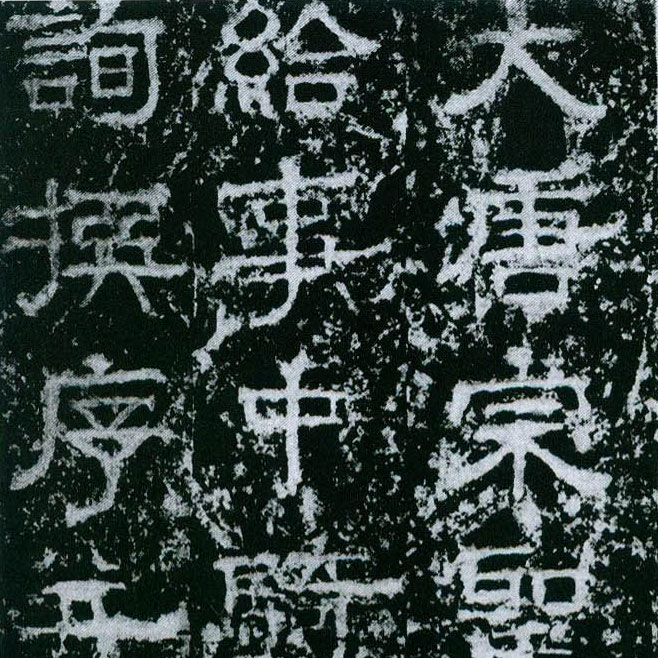 大唐宗聖
給事中騎
詢撰序